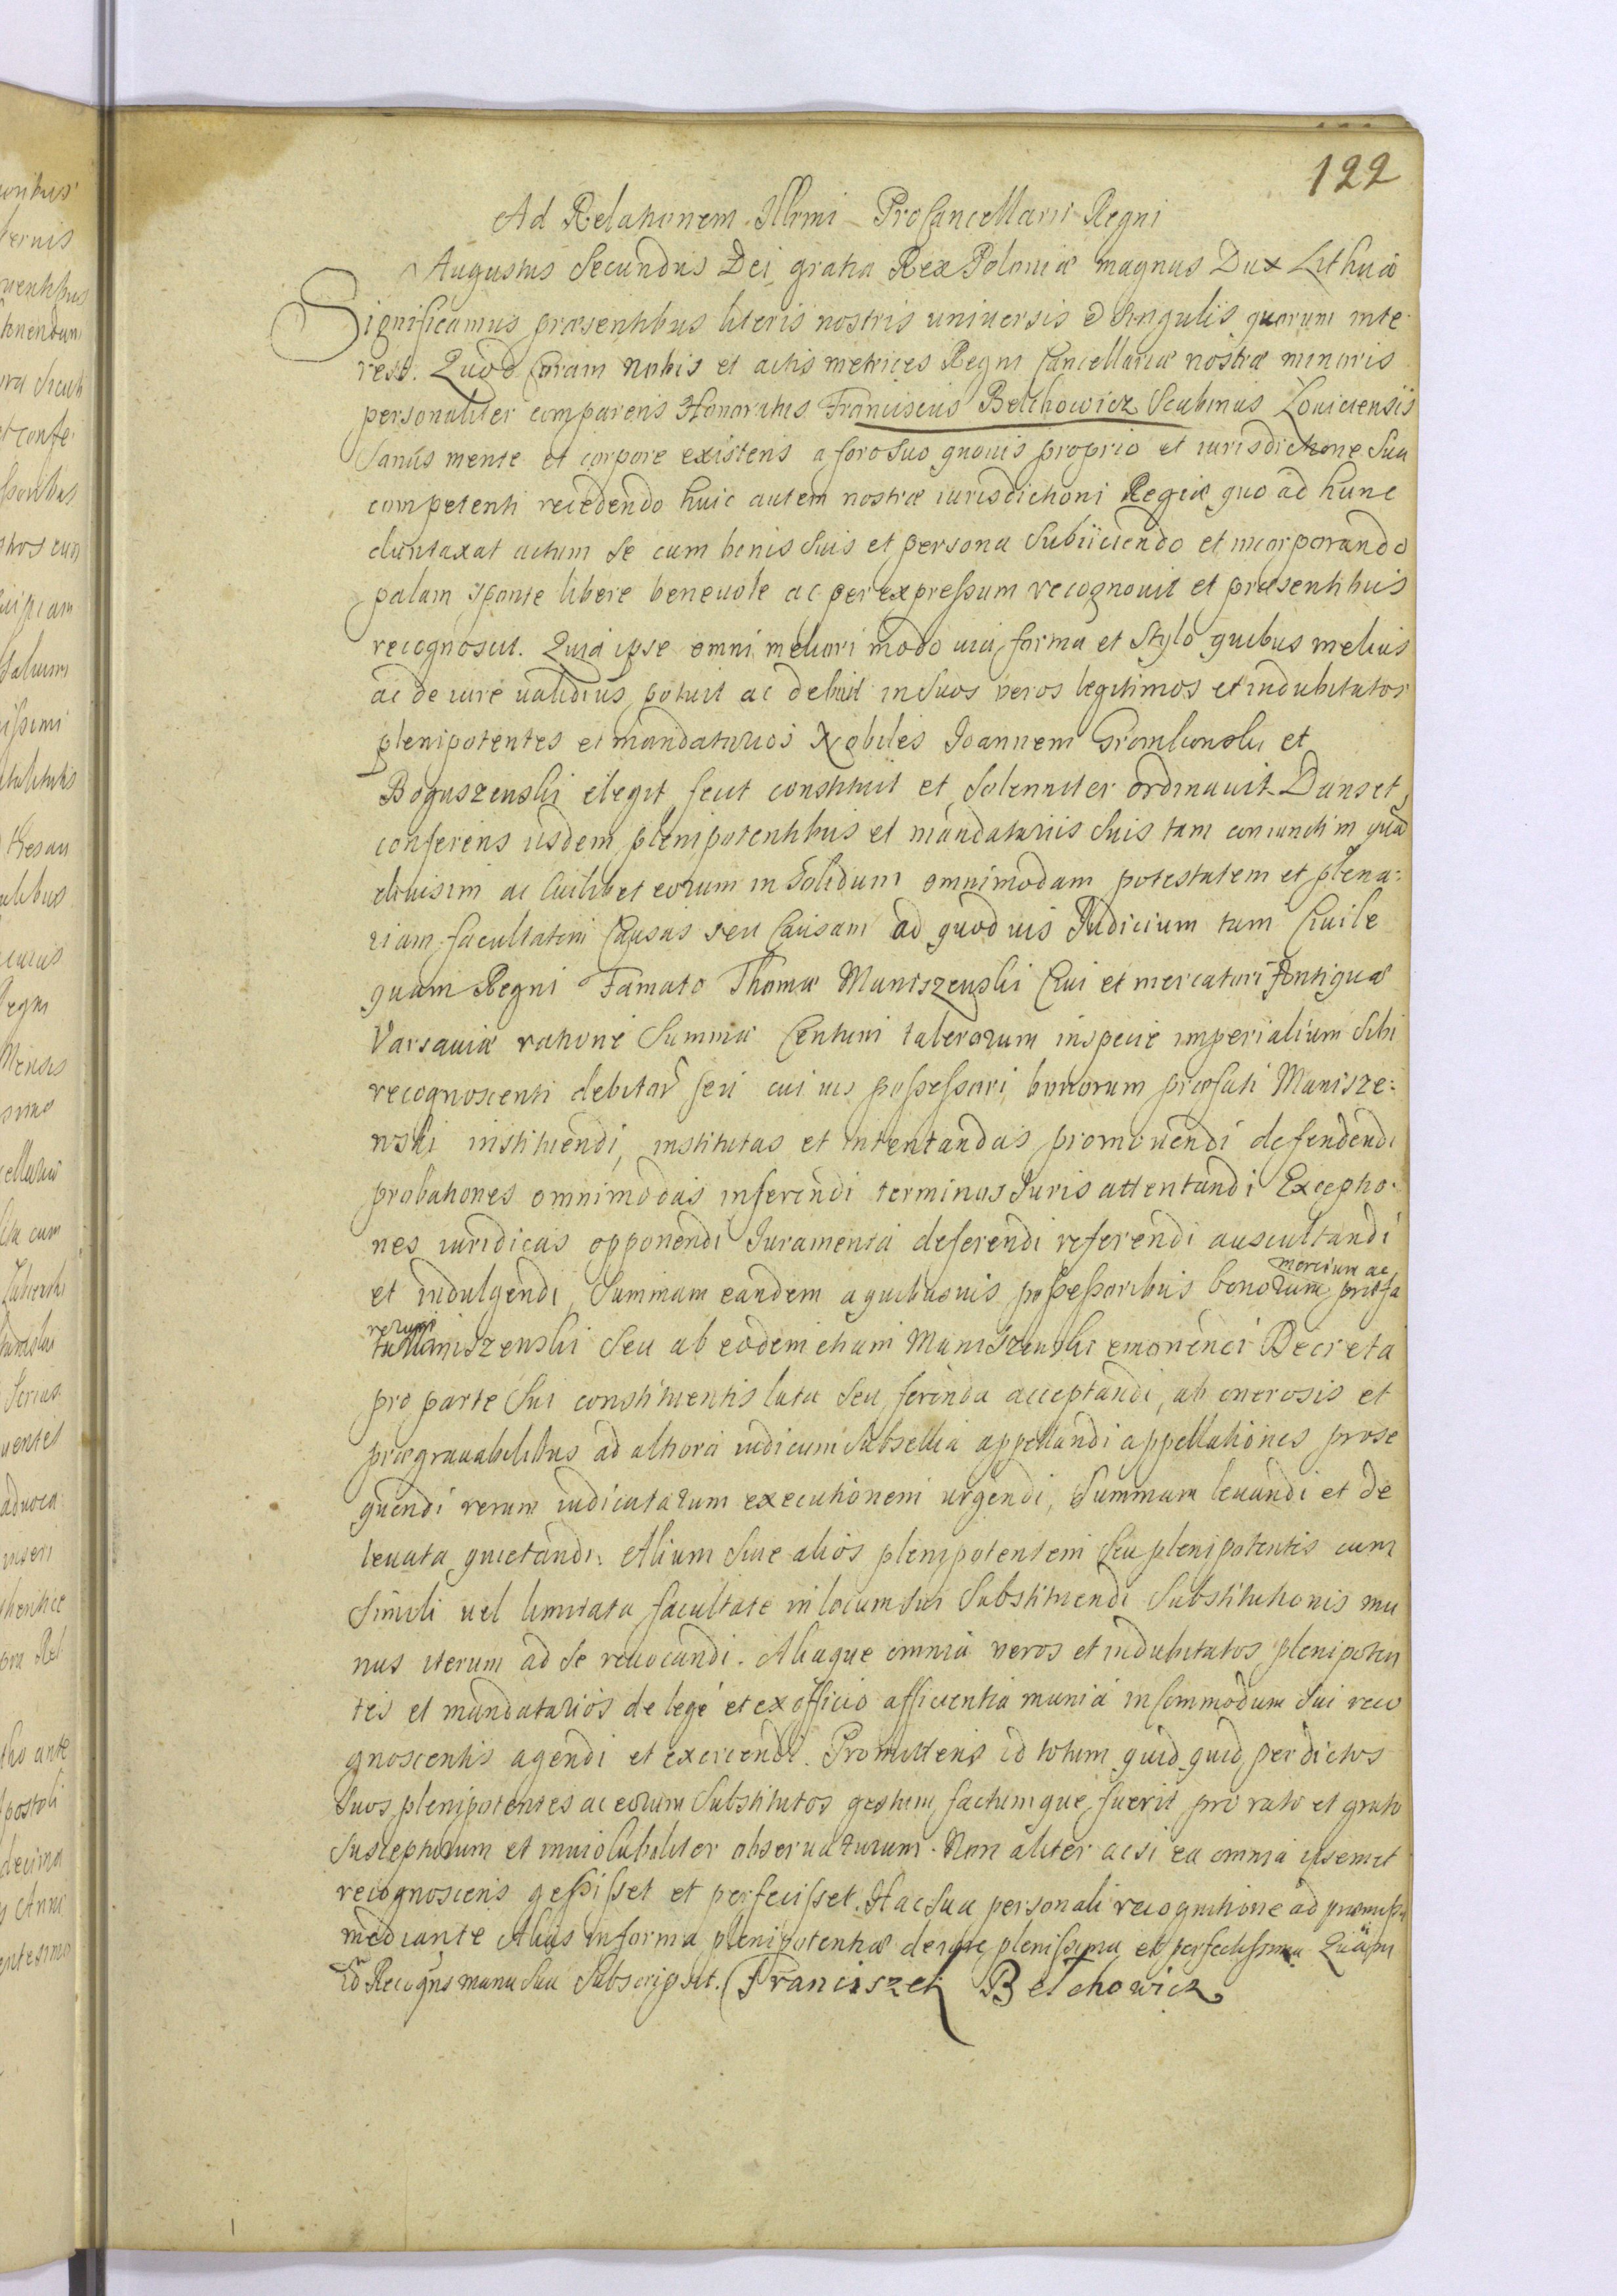 122
Ad Relationem Illrmi ProCancellarii Regni
Augustus Secundus Dei gratia Rex Poloniæ magnus Dux Lithuæ
Significamus præsentibus literis nostris universis et singulis quorum inte
rest. Quod Coram nobis et actis metrices Regni Cancellariæ nostræ minoris
personaliter comparens Honoratus Franciscus Belchowicz Scabinus Loviciensis
Sanus mente et corpore existens a foro suo quovis proprio et iurisdictione sua
competenti recedendo huic autem nostræ iurisdictioni Regiæ quo ad hunc
duntaxat actum se cum bonis suis et persona subiiciendo et incorporando
palam sponte libere benevole ac per expressum recognovit et præsentibus
recognoscit. Quia ipse omni meliori modo via forma et stylo quibus melius
ac de iure validius potuit ac debuit in suos veros legitimos et indubitatos
plenipotentes et mandatarios Nobiles Joannem et
Boguszewski elegit fecit constituit et solenniter ordinavit Dans et
conferens iisdem plenipotentibus et mandatariis suis tam coniunctim quã
divisim ac cuilibet eorum in solidum omnimodam potestatem et plena:
riam facultatem Causas seu Causam ad quodvis Judicium tam Civile
quam Regni Famato Thomæ Maniszewski Civi et mercatori Antiquæ
Varsaviæ ratione Summæ Centum talerorum in specie imperialium sibi
recognoscenti debitar seu cui vis possessori bonorum præfati Manisze:
wski instituendi, institutas et intentandas promovendi defendendi
probationes omnimodas inferendi terminos Juris attentandi Exceptio-
nes iuridicas opponendi Juramenta deferendi referendi auscultandi
et indulgendi, Summam eandem a quibusvis possessoribus bonorum mercium ac præfa
rerum ti Maniszewski seu ab eodem etiam Maniszewski emonendi Decreta
pro parte sui constituentis lata seu ferenda acceptandi, ab onerosis et
prægravabilibus ad altiora iudicum Subsellia appellandi appellationes prose
quendi rerum iudicatarum executionem urgendi, Summam levandi et de
levata quietandi. Alium sive alios plenipotentem seu plenipotentes cum
simili vel limitata facultate in locum sui substituendi substitutionis mu
nus iterum ad se revocandi. Aliaque omnia veros et indubitatos plenipoten
tes et mandatarios de lege et ex officio afficientia munia in Commodum sui reco
gnoscentis agendi et exercendi. Promittens id totum quid quid per dictos
suos plenipotentes ac eorum substitutos gestum factumque fuerit pro rato et grato
suscepturum et inviolabiliter observaturum. Non aliter ac si ea omnia ipsemet
recognoscens gessisset et perfecisset. Hac sua personali recognitione ad præmissa
mediante Alias in forma plenipotentiæ plenissima et perfectissima
id Recogns manu sua subscripsit. Franciszek Belchowicz